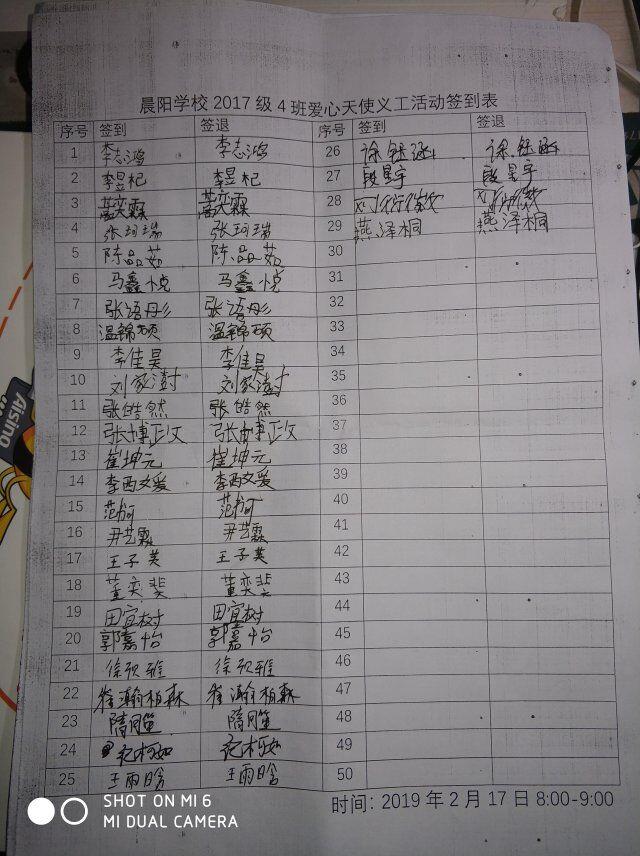 晨阳学校 2017 级 4 班爱心天使义工活动签到表
序号 签到 签退 序号 签到 签退
1 李志鸿 李志鸿 26
2 李昱杞 李昱杞 27 段星宇 段星宇
3 28
4 张珂瑞 张珂瑞 29 燕泽桐 燕泽桐
5 陈品茹 陈品茹 30
6 马鑫悦 马鑫悦 31
7 张语彤 张语彤 32
8 温锦硕 温锦硕 33
9 李佳昊 李佳昊 34
10 刘家澍 刘家澍 35
11 张皓然 张皓然 36
12 张博正文 张博正文 37
13 崔坤元 崔坤元 38
14 李西文爱 李西文爱 39
15 40
16 尹艺霖 尹艺霖 41
17 王子芙 王子芙 42
18 董奕斐 董奕斐 43
19 田宜树 田宜树 44
20 郭嘉怡 郭嘉怡 45
21 徐歆雅 徐歆雅 46
22 瀚柏森 瀚柏森 47
23 隋 隋 48
24 49
25 王雨晗 王雨晗 50
时间：2019 年 2 月 17 日 8:00-9:00
Aisino
SHOT ON MI 6
MI DUAL CAMERA